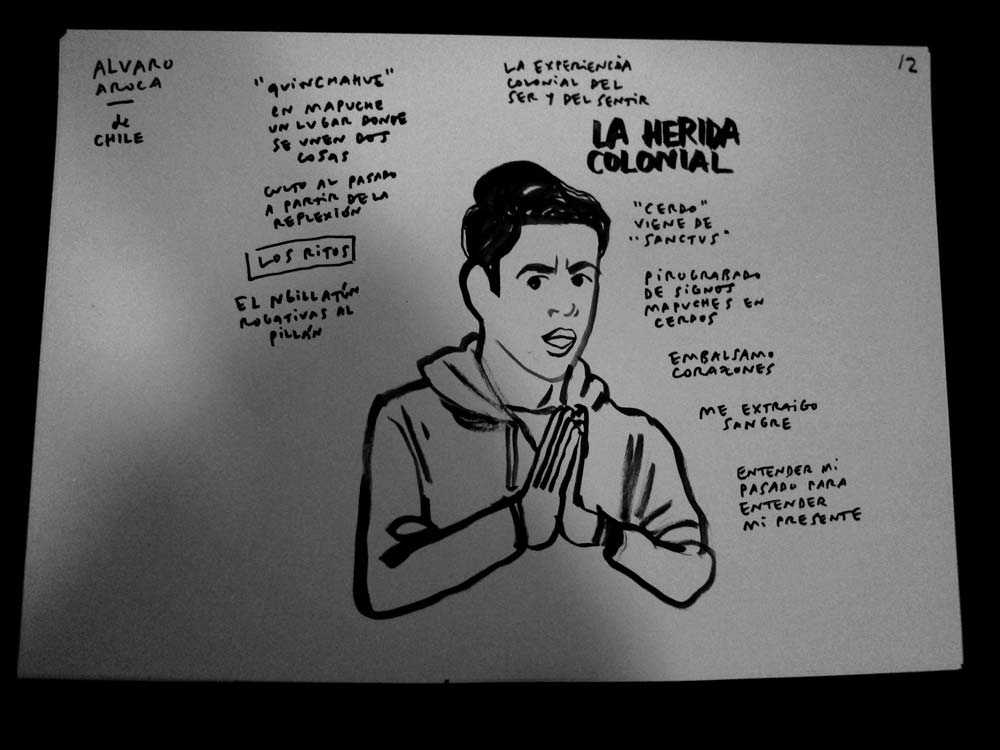 ALVARO
AROCA
de
CHILE
"QUINCHAHUE"
EN MAPUCHE
UN LUGAR DONDE
SE UNEN DOS
COSAS
CULTO AL PASADO
A PARTIR DE LA
REFLEXIÓN
LOS RITOS
EL NGILLATÚN
ROGATIVAS AL
PILLÁN
LA EXPERIENCIA
COLONIAL DEL
SER Y DEL SENTIR
LA HERIDA
COLONIAL
"CERDO"
VIENE DE
"SANCTUS"
PIROGRABADO
DE SIGNOS
MAPUCHES EN
CERDOS
EMBALSAMO
CORAZONES
ME EXTRAIGO
SANGRE
ENTENDER MI
PASADO PARA
ENTENDER
MI PRESENTE
12